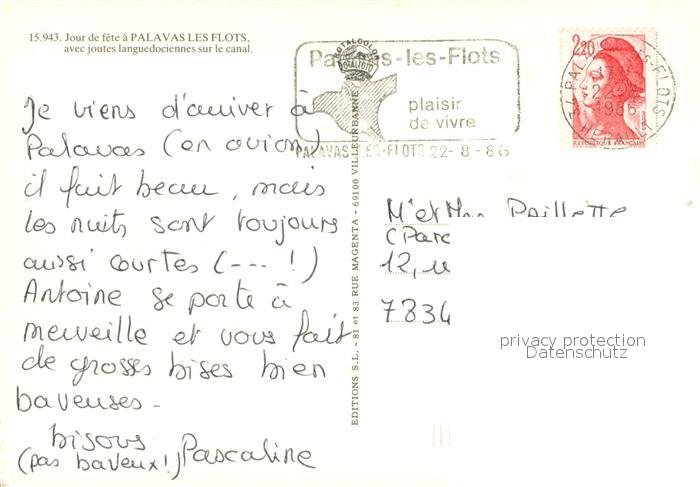 15.943. Jour de fête à PALAVAS LES FLOTS,
avec joutes languedociennes sur le canal.
Je viens d'arriver à
Palavas (en avion)
il fait beau, mais
les nuits sont toujours
aussi courtes (--- !)
Antoine se porte à
merveille et vous fait
de grosses bises bien
baveuses -
bisous
(pas baveux!) Pascaline
EDITIONS S.L. - 81 et 83 RUE MAGENTA - 69100 VILLEURBANNE
Palavas-les-Flots
plaisir
de vivre
PALAVAS-LES-FLOTS 22-8-86
2,20
REPUBLIQUE FRANCAISE
22-8
1986
HERAULT
M' et Mme Paillette
(Parc
12,
7834
privacy protection
Datenschutz